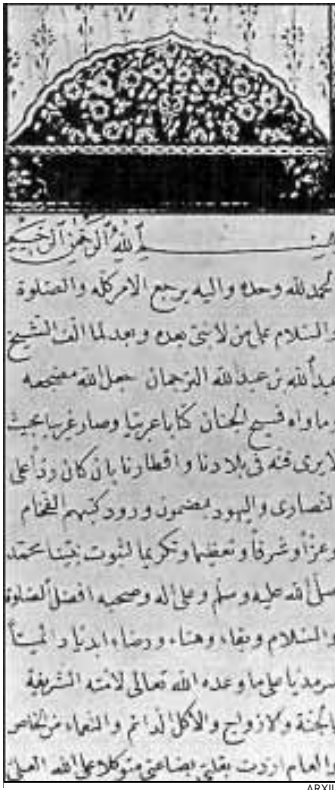 بسم الله الرحمن الرحيم
الحمد لله وحده واليه يرجع الامر كله والصلوة
والسلام على من لا نبى بعده وبعد لما الف الشيخ
عبد الله بن عبد الله الترجمان جعل الله مضجعه
وماواه فسيح الجنان كتابا عربيا وصار غريبا بحيث
لا يرى فنه فى بلادنا واقطارنا بان كان ردا على
النصارى واليهود بمضمون ورود كتبهم الفخام
وعزا وشرفا وتعظيما وتكريما لثبوت نبينا محمد
صلى الله عليه وسلم وعلى اله وصحبه افضل الصلوة
والسلام وبقاء وهناء ورضاء ابديا و
سرمديا على ما وعده الله تعالى لامته الشريفة
بالجنة والازواج والاكل الدائم والنعماء من الخاص
والعام اردت بقلتى بضاعتى متوكلا على الله العلى
ARXIU